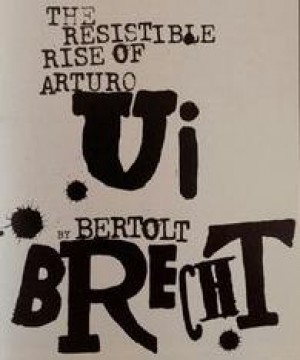 THE
RESISTIBLE
RISE OF
ARTURO
Ui
BY BERTOLT
BRECHT